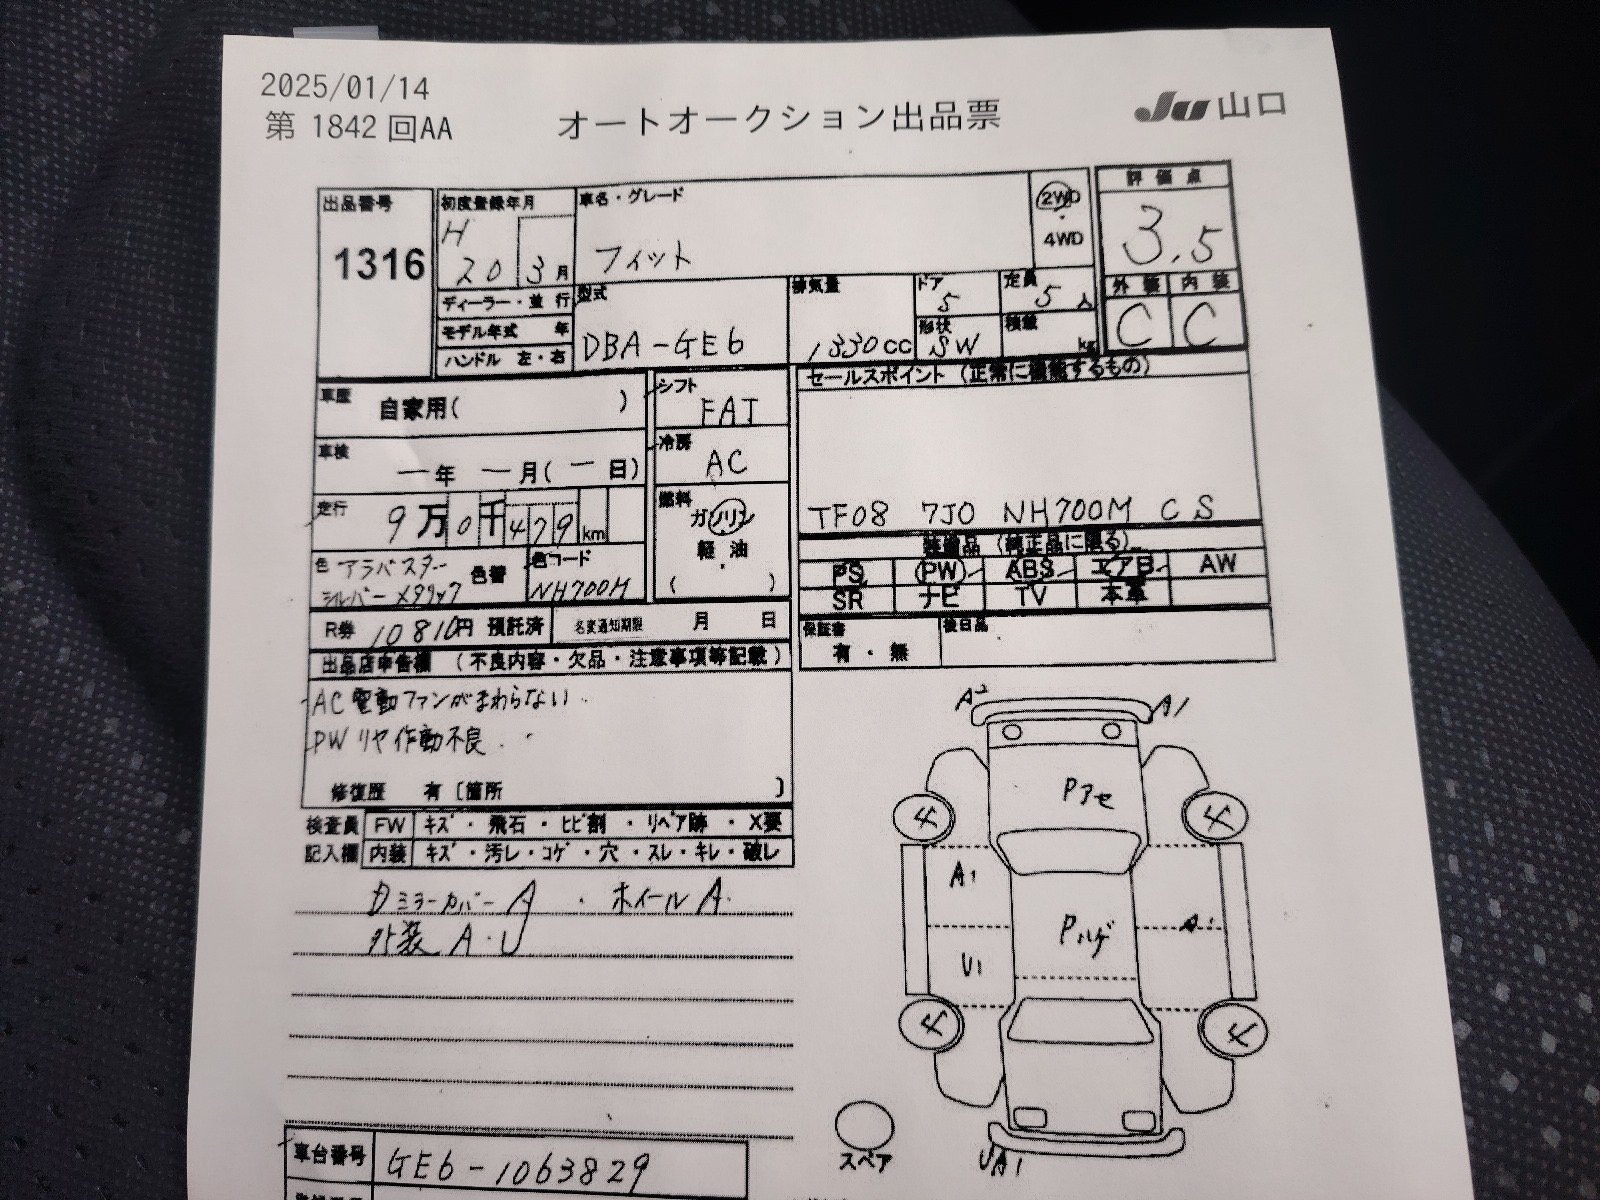 2025/01/14
第 1842 回AA
オートオークション出品票
JU 山口
出品番号
1316
初度登録年月
H
20 3月
ディーラー・並行
モデル年式 年
ハンドル 左・右
車名・グレード
フィット
2WD
・
4WD
評価点
3.5
外装 内装
C C
型式
DBA-GE6
排気量
1330cc
ドア
5
定員
5人
形状
SW
積載
kg
車歴
自家用( )
車検
ー年 ー月(ー日)
走行
9万0千479km
色 アラバスター
シルバーメタリック
色替
色コード
NH700M
シフト
FAT
冷房
AC
燃料
ガソリン
軽・油
( )
セールスポイント (正常に機能するもの)
TF08 7J0 NH700M CS
装備品 (純正品に限る)
PS PW ABS エアB AW
SR ナビ TV 本革
R券 10810円 預託済
名変通知期限 月 日
保証書
有・無
後日品
出品店申告欄 (不良内容・欠品・注意事項等記載)
AC電動ファンがまわらない
PWリヤ作動不良
修復歴 有〔箇所 〕
検査員
記入欄
FW キズ・飛石・ヒビ割・リペア跡・X要
内装 キズ・汚レ・コゲ・穴・スレ・キレ・破レ
Dミラーカバー A ・ホイール A
外装 A・U
A2
A1
Pアセ
4
4
A1
Pハゲ
U1
4
4
スペア
UA1
車台番号
GE6-1063829